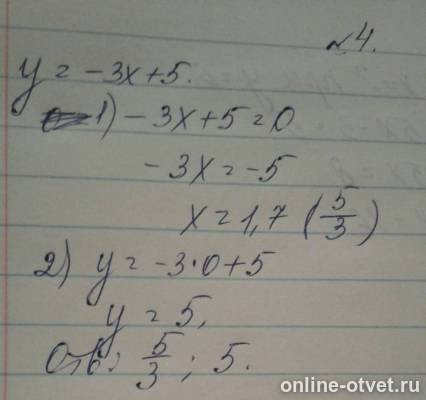 №4.
y = -3x+5.
1) -3x+5=0
-3x = -5
x = 1,7 (5/3)
2) y = -3·0+5
y = 5,
Отв: 5/3; 5.
online-otvet.ru